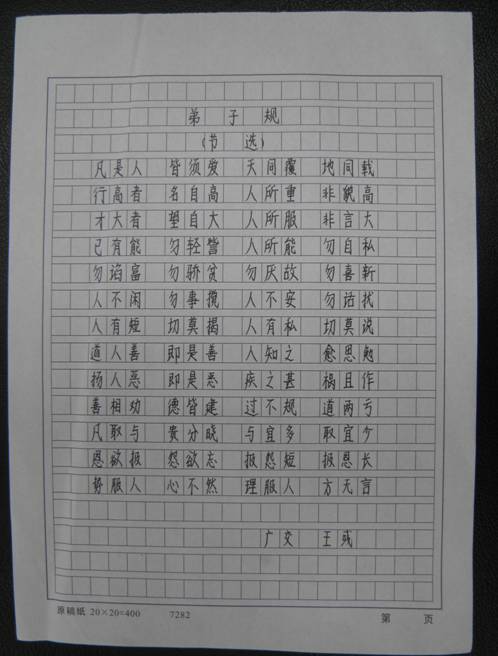 弟子规
(节选)
凡是人 皆须爱 天同覆 地同载
行高者 名自高 人所重 非貌高
才大者 望自大 人所服 非言大
己有能 勿轻訾 人所能 勿自私
勿谄富 勿骄贫 勿厌故 勿喜新
人不闲 勿事搅 人不安 勿话扰
人有短 切莫揭 人有私 切莫说
道人善 即是善 人知之 愈思勉
扬人恶 即是恶 疾之甚 祸且作
善相劝 德皆建 过不规 道两亏
凡取与 贵分晓 与宜多 取宜少
恩欲报 怨欲忘 报怨短 报恩长
势服人 心不然 理服人 方无言
广交 王
原稿纸 20×20=400 7282 第 页